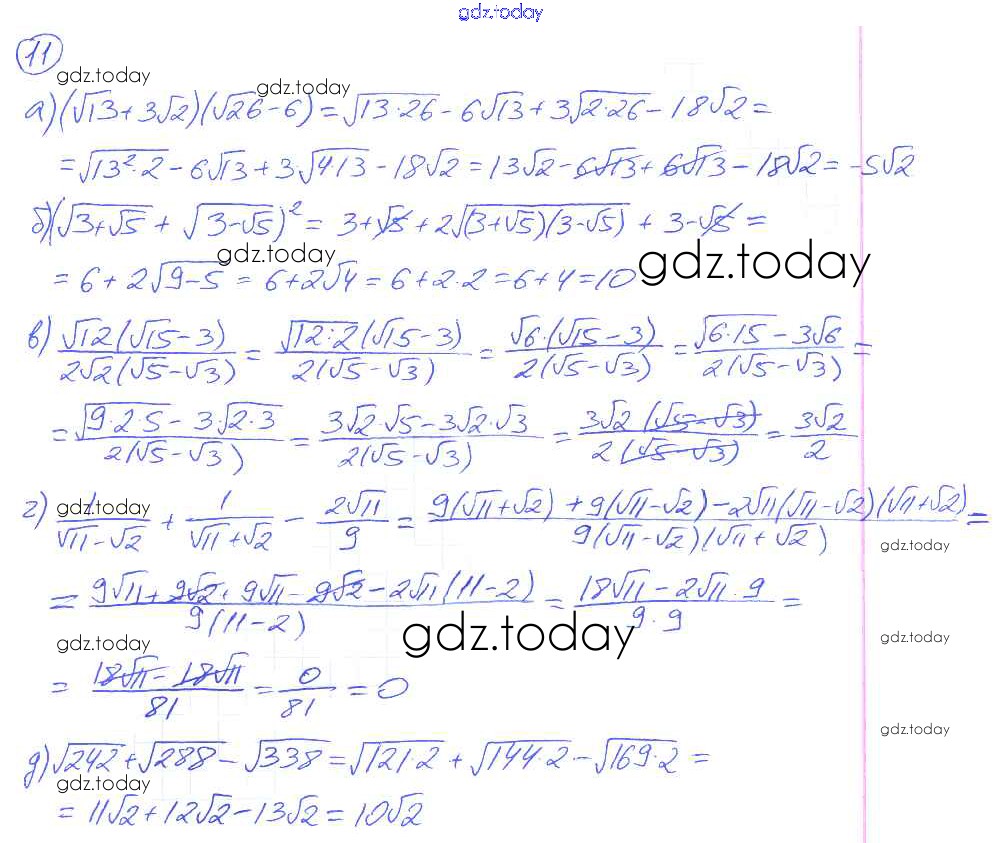 gdz.today
11
gdz.today
gdz.today
а) (√13 + 3√2)(√26 - 6) = √13·26 - 6√13 + 3√2·26 - 18√2 =
= √13²·2 - 6√13 + 3·√4·13 - 18√2 = 13√2 - 6√13 + 6√13 - 18√2 = -5√2
б) (√3+√5 + √3-√5)² = 3+√5 + 2√(3+√5)(3-√5) + 3-√5 =
gdz.today
gdz.today
= 6 + 2√9-5 = 6+2√4 = 6+2·2 = 6+4 = 10
в) √12(√15-3)/2√2(√5-√3) = √12:2(√15-3)/2(√5-√3) = √6·(√15-3)/2(√5-√3) = √6·15 - 3√6/2(√5-√3) =
= √9·2·5 - 3·√2·3/2(√5-√3) = 3√2·√5 - 3√2·√3/2(√5-√3) = 3√2(√5-√3)/2(√5-√3) = 3√2/2
gdz.today
г) 1/√11-√2 + 1/√11+√2 - 2√11/9 = 9(√11+√2) + 9(√11-√2) - 2√11(√11-√2)(√11+√2)/9(√11-√2)(√11+√2) =
gdz.today
= 9√11 + 9√2 + 9√11 - 9√2 - 2√11(11-2)/9(11-2) = 18√11 - 2√11·9/9·9 =
gdz.today
gdz.today
gdz.today
= 18√11 - 18√11/81 = 0/81 = 0
gdz.today
д) √242 + √288 - √338 = √121·2 + √144·2 - √169·2 =
gdz.today
= 11√2 + 12√2 - 13√2 = 10√2